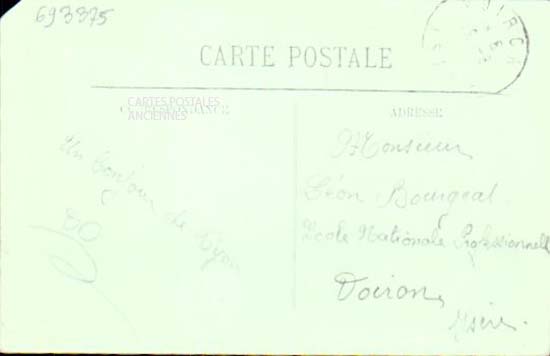 693375
CARTE POSTALE
CARTES POSTALES
ANCIENNES
CORRESPONDANCE
ADRESSE
Un bonjour de Lyon
Monsieur
Léon Bourgeat
Ecole Nationale Professionnelle
Voiron
Isère.